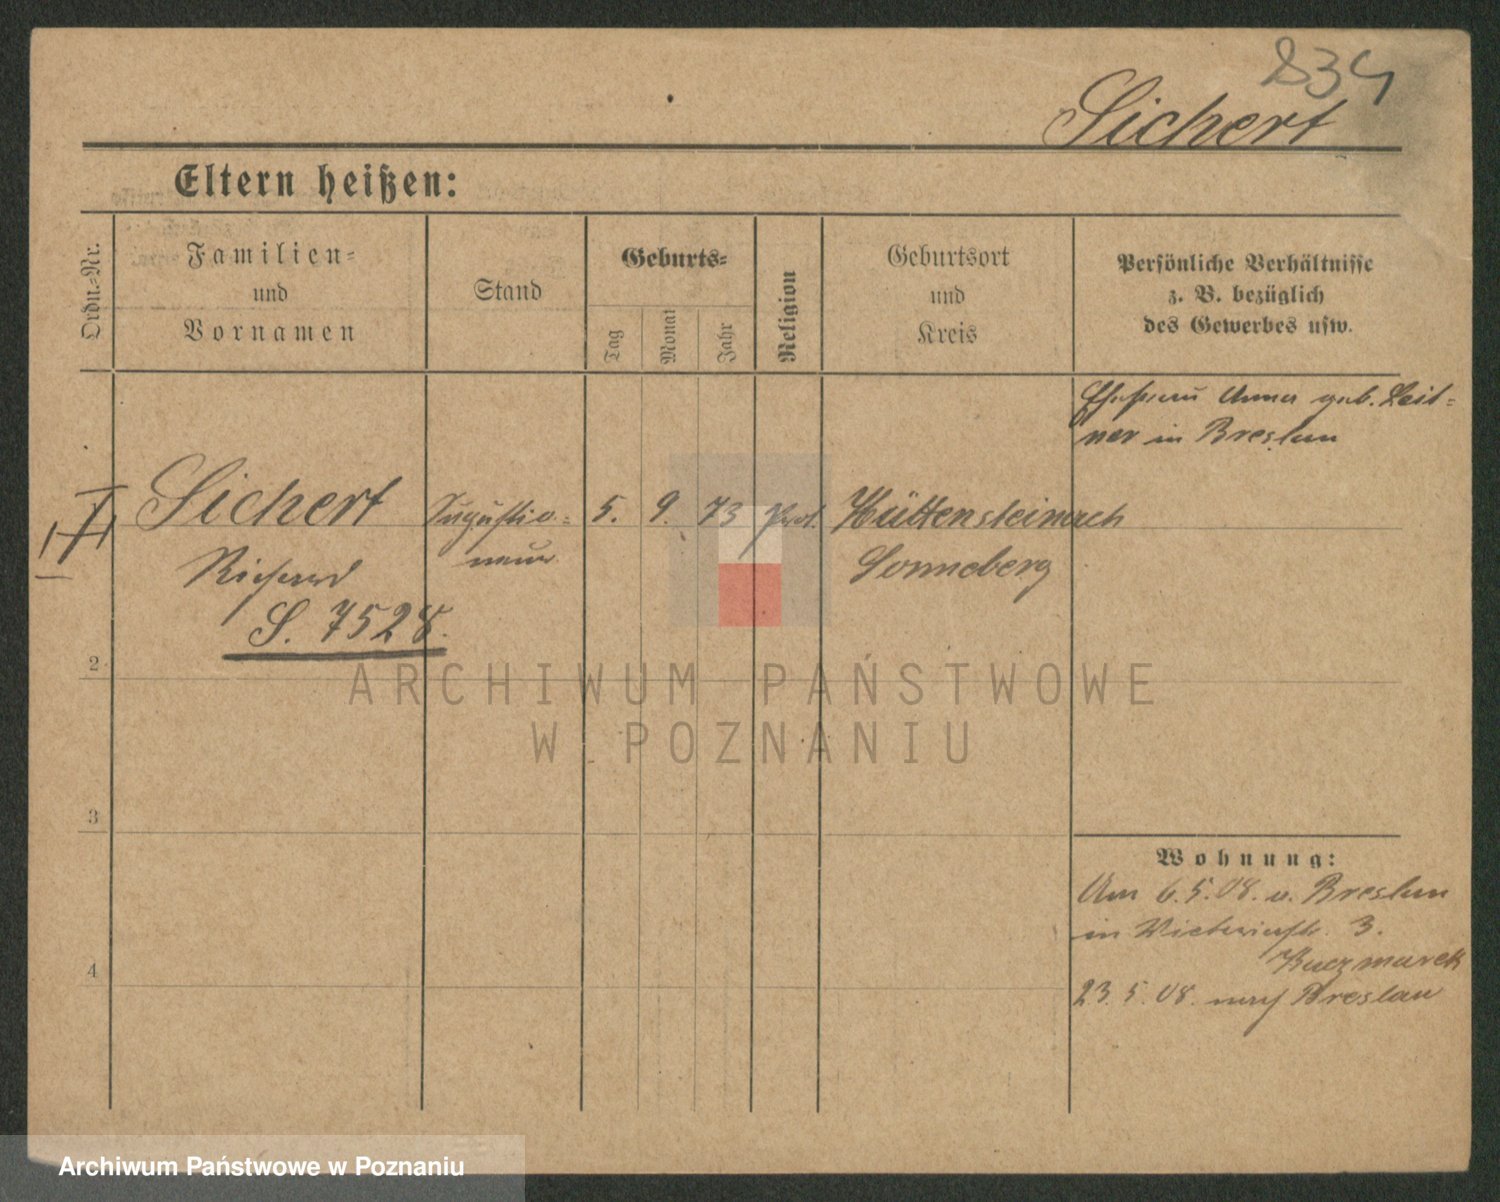 834
Sichert
Eltern heißen:
Ordn.-Nr.
Familien-
und
Vornamen
Stand
Geburts-
Tag
Monat
Jahr
Religion
Geburtsort
und
Kreis
Persönliche Verhältnisse
z. B. bezüglich
des Gewerbes usw.
Ehefrau Anna geb. Leit-
ner in Breslau
Sichert
Richard
S. 7528.
5. 9. 73
Prot.
Hüttensteinach
Sonneberg
2
3
4
Wohnung:
Am 6.5.08. v. Breslau
in 3.
Kaczmarek
23.5.08. nach Breslau
ARCHIWUM PAŃSTWOWE
W POZNANIU
Archiwum Państwowe w Poznaniu